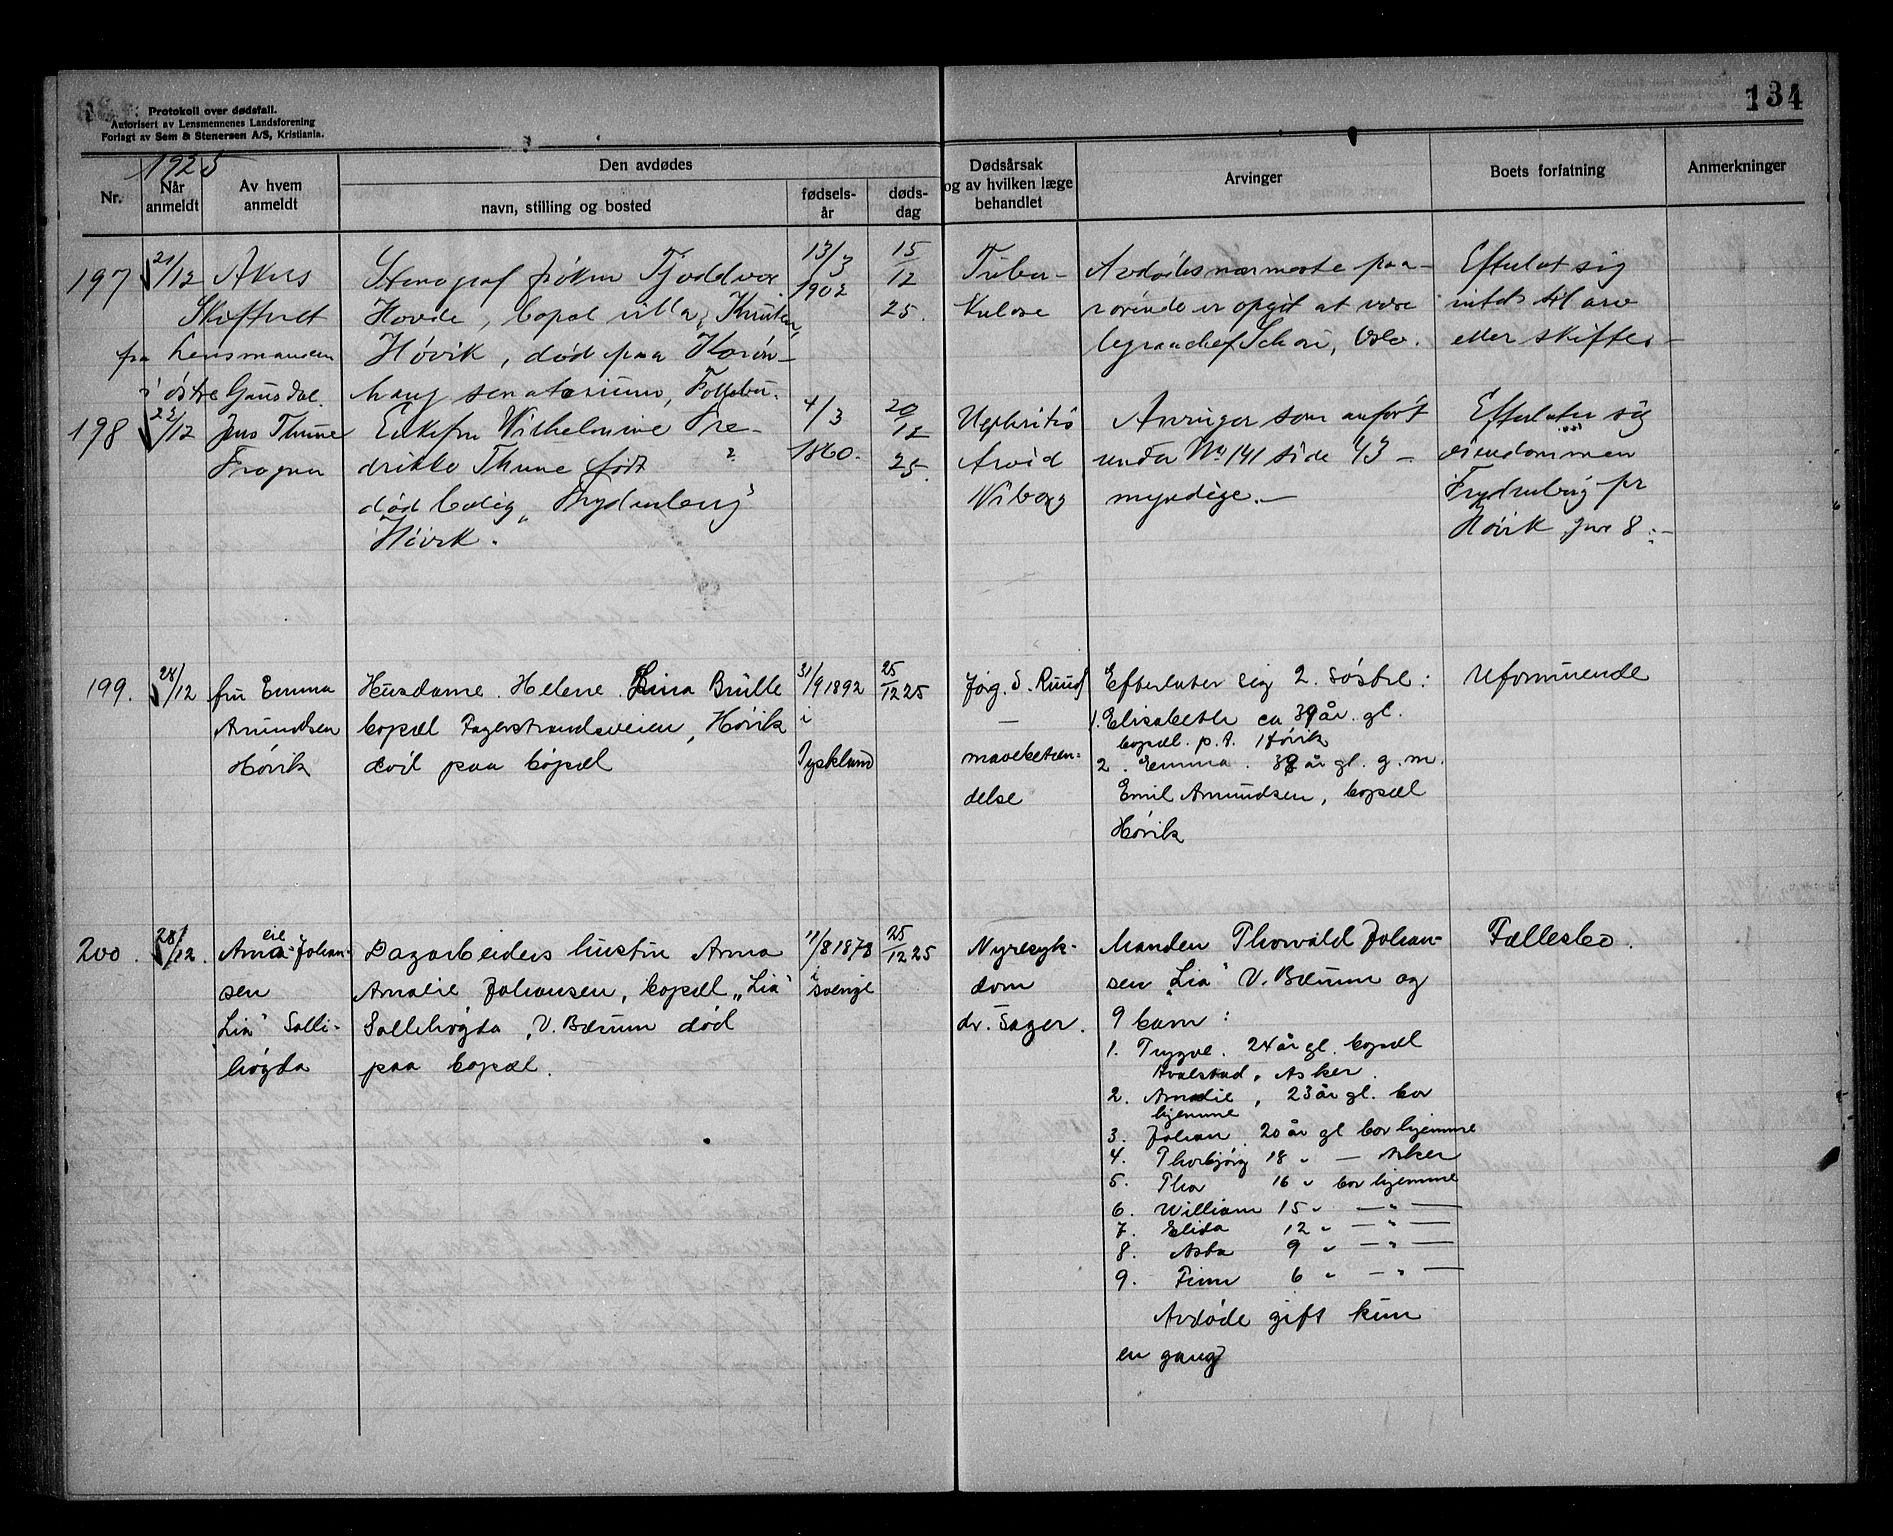 134
Protokoll over dødsfall.
Autorisert av Lensmennenes Landsforening
Forlagt av Sem & Stenersen A/S, Kristiania.
1925
Nr.
Når
anmeldt
Av hvem
anmeldt
Den avdødes
navn, stilling og bosted
fødsels-
år
døds-
dag
Dødsårsak
og av hvilken læge
behandlet
Arvinger
Boets forfatning
Anmerkninger
197
21/12
Akers
Skifteret
fra Lensmannen
i østre Gausdal.
Stenograf frøken
Hovde, bopæl villa
Høvik, død paa
sanatorium,
13/3
1902
15
12
25.
Tuber-
kulose
Avdødes nærmeste paa-
rørende er opgit at være
Oslo.
Efterlot sig
intet til arv
eller skifte.-
198
22/12
Jens Thune
Frogner
Enkefru Wilhelmine Fre-
drikke Thune født ?
død bolig "Frydenberg"
Høvik.
4/3
1860.
20
12
25.
Nephritis
Arvid
Wiborg
Arvinger som anført
under No 141 side 43 -
myndige.-
Efterlater sig
eiendommen
Frydenberg pr
Høvik gnr 8.-
199.
28/12
fru Emma
Amundsen
Høvik
Husdame. Helene Lina Brülle
bopæl Fagerstrandsveien, Høvik
død paa bopæl
31/9 1892
i
Tyskland
25
12 25
Jørg. S. Ruud
-
mavebetæn-
delse
Efterlater sig 2. søstre:
1. Elisabeth ca 39 år. gl.
bopæl. p.t. Høvik
2. Emma. år gl. g.m.
Emil Amundsen, bopæl
Høvik
Uformuende
200.
28/12.
Johan-
sen
"Lia" Solli-
høgda
Dagarbeiders hustru Anna
Amalie Johansen, bopæl "Lia"
Sollihøgda, V. Bærum død
paa bopæl.
11/8 1878
i
sverige
25
12 25
Nyresyk-
dom
dr. Sager.
Manden Thorvald Johan-
sen "Lia" V. Bærum og
9 barn:
1. Trygve. 24 år gl. bopæl
Hvalstad, Asker.
2. Amalie, 23 år gl. bor
hjemme
3. Johan. 20 år gl bor hjemme
4. Thorbjørg 18 " — Asker
5. Thor 16 " bor hjemme
6. William 15 " — " —
7. Elida 12 " — " —
8. Asta 9 " — " —
9. Finn 6 " — " —
Avdøde gift kun
en gang
Fællesbo.